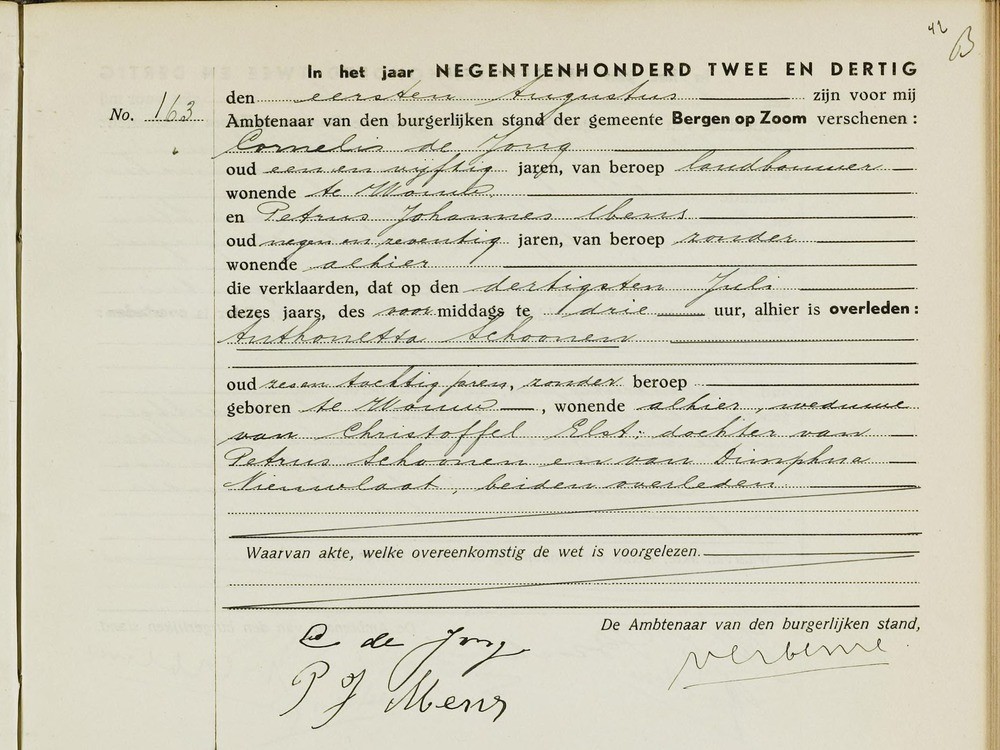 42
B
In het jaar NEGENTIENHONDERD TWEE EN DERTIG
den eersten Augustus zijn voor mij
No. 163
Ambtenaar van den burgerlijken stand der gemeente Bergen op Zoom verschenen :
Cornelis de Jong
oud een en vijftig jaren, van beroep landbouwer
wonende te Wouw
en Petrus Johannes Mens
oud negen en zeventig jaren, van beroep zonder
wonende alhier
die verklaarden, dat op den dertigsten Juli
dezes jaars, des voor middags te drie uur, alhier is overleden :
Anthonetta Schoonen
oud zes en tachtig jaren, zonder beroep
geboren te Wouw , wonende alhier, weduwe
van Christoffel Elst; dochter van
Petrus Schoonen en van Dimphna
Nieuwlaat, beiden overleden
Waarvan akte, welke overeenkomstig de wet is voorgelezen.
De Ambtenaar van den burgerlijken stand,
C de Jong
P J Mens